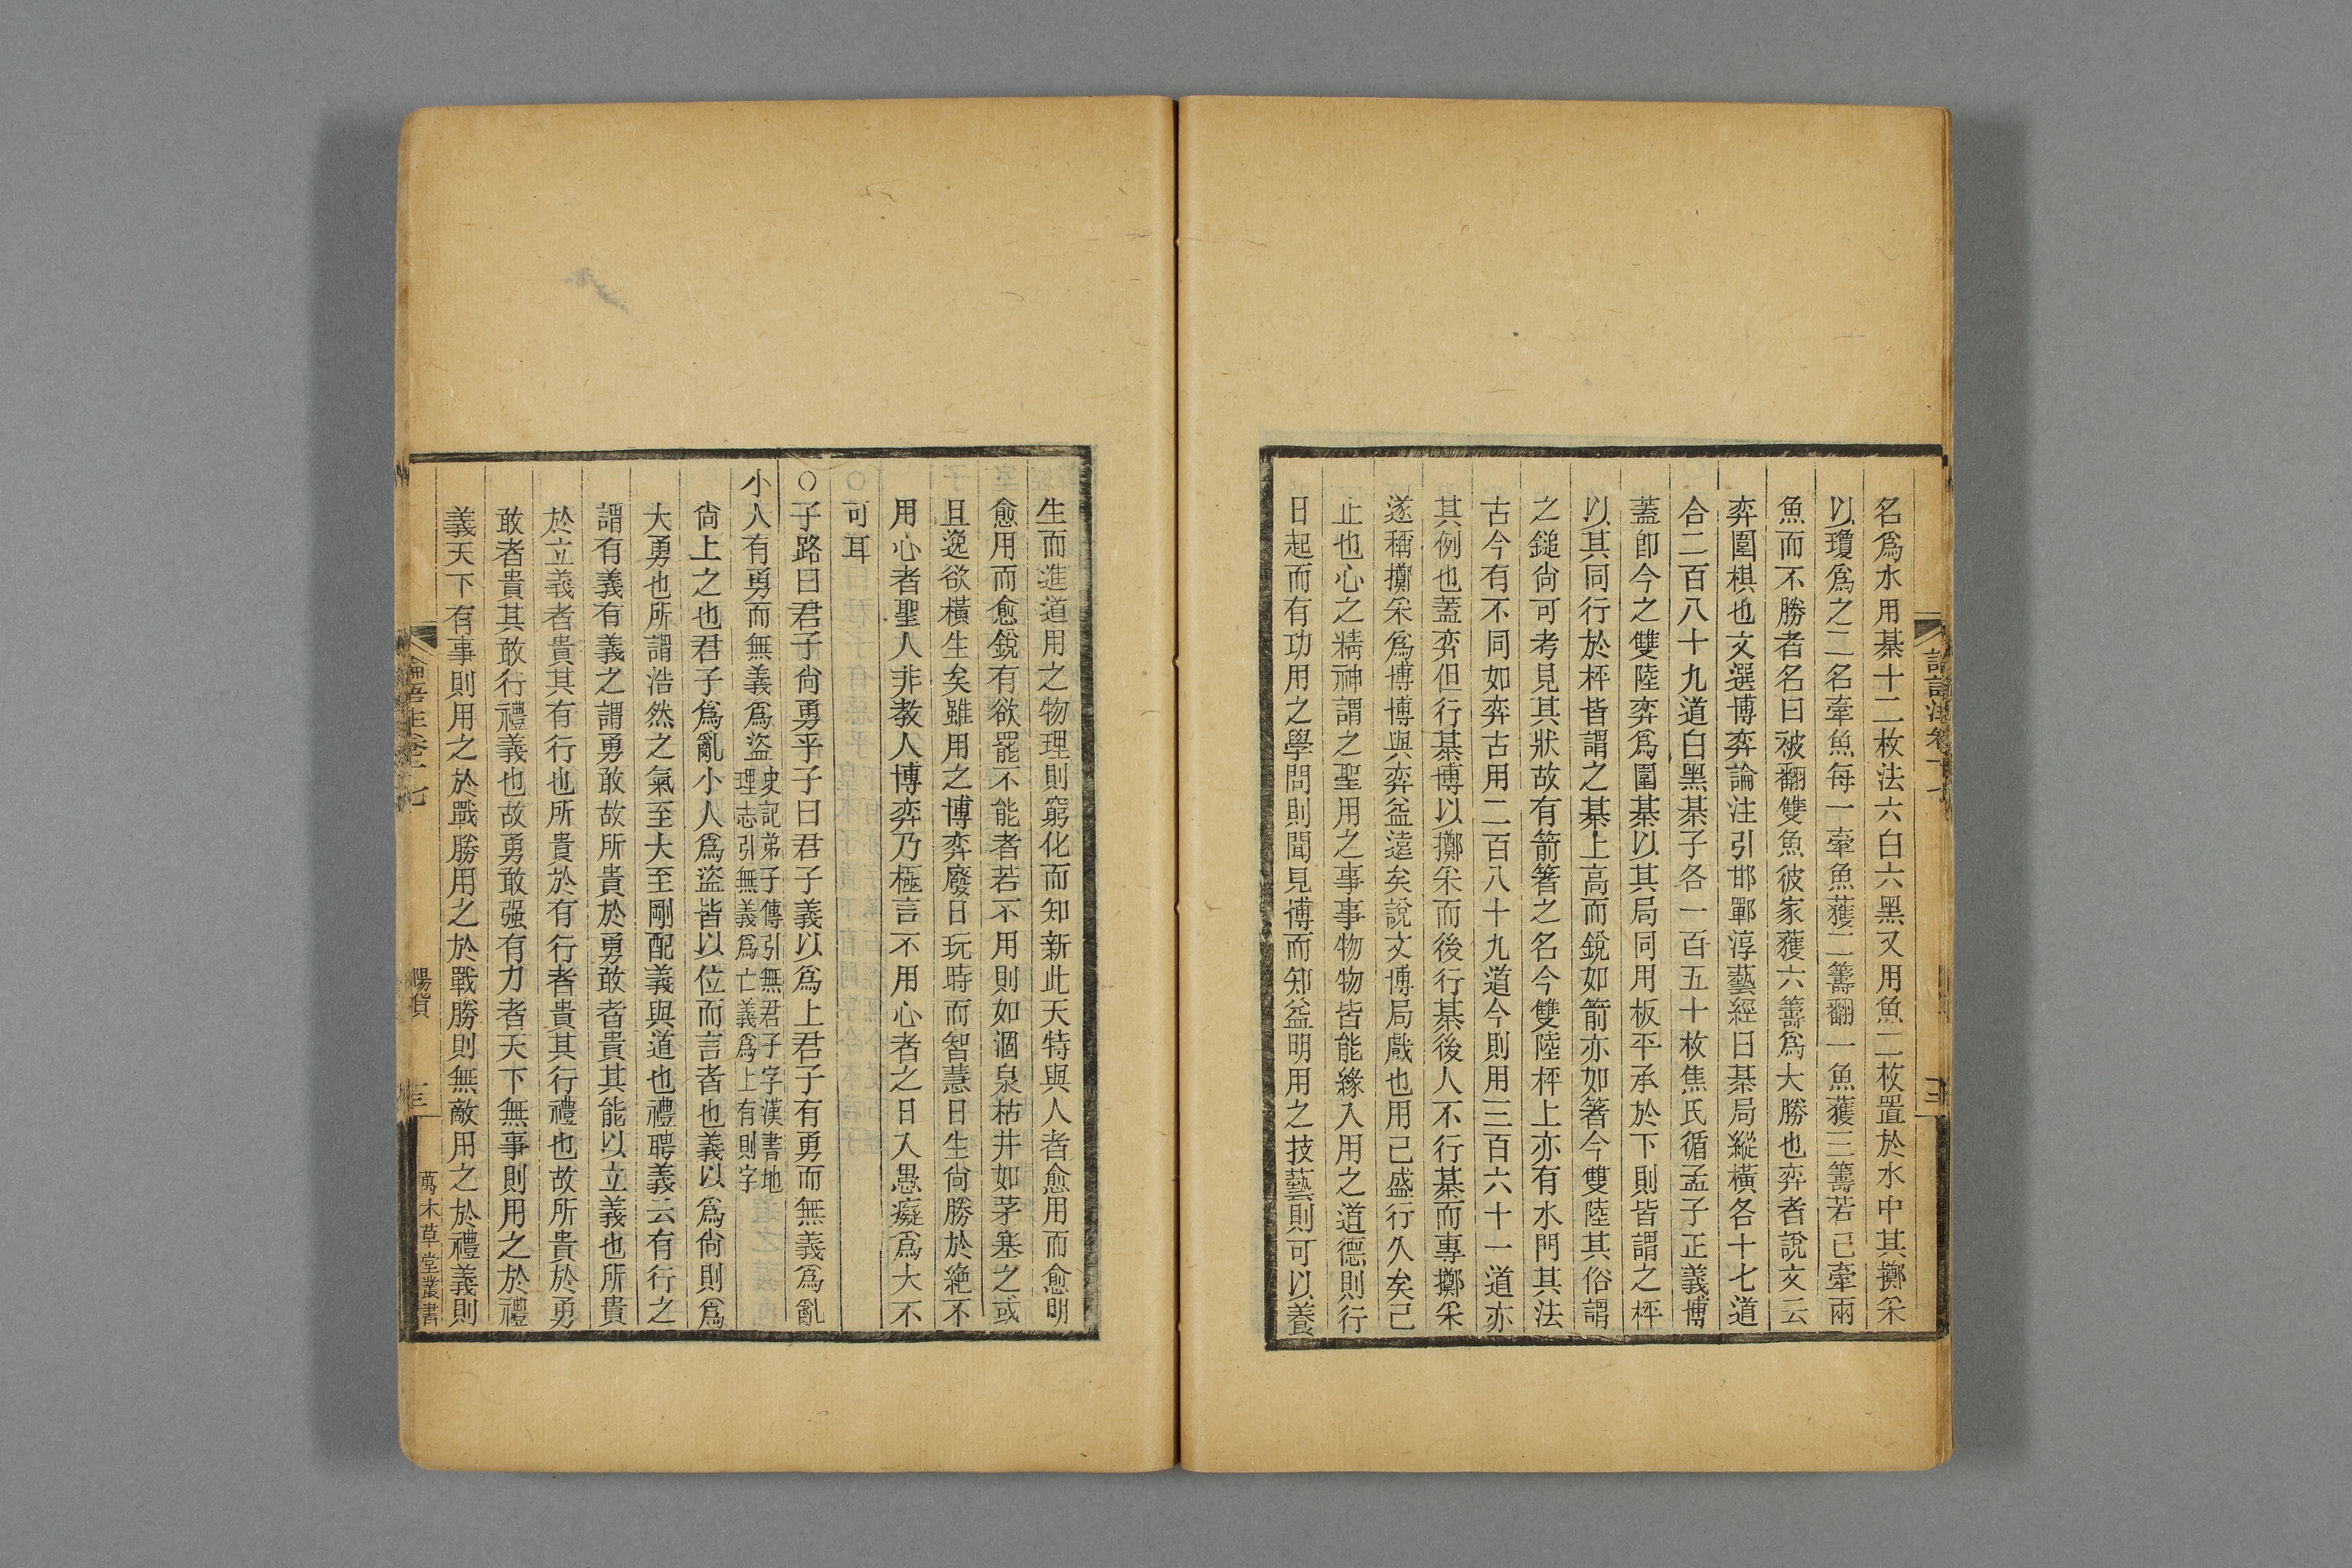 名爲水用棊十二枚法六白六黑又用魚二枚置於水中其擲采
以瓊爲之二名牽魚每一牽魚獲二籌翻一魚獲三籌若已牽兩
魚而不勝者名曰被翻雙魚彼家獲六籌爲大勝也弈者說文云
弈圍棋也文選博弈論注引邯鄲淳藝經曰棊局縱橫各十七道
合二百八十九道白黑棊子各一百五十枚焦氏循孟子正義博
蓋卽今之雙陸弈爲圍棊以其局同用板平承於下則皆謂之枰
以其同行於枰皆謂之棊上高而銳如箭亦如箸今雙陸其俗謂
之鎚尙可考見其狀故有箭箸之名今雙陸枰上亦有水門其法
古今有不同如弈古用二百八十九道今則用三百六十一道亦
其例也蓋弈但行棊博以擲采而後行棊後人不行棊而專擲采
遂稱擲采爲博博與弈益遠矣說文博局戲也用已盛行久矣已
止也心之精神謂之聖用之事事物物皆能緣入用之道德則行
日起而有功用之學問則聞見博而知益明用之技藝則可以養
生而進道用之物理則窮化而知新此天特與人者愈用而愈明
愈用而愈銳有欲罷不能者若不用則如涸泉枯井如茅塞之或
且逸欲橫生矣雖用之博弈廢日玩時而智慧日生尙勝於絶不
用心者聖人非教人博弈乃極言不用心者之日入愚癡爲大不
可耳
○子路曰君子尙勇乎子曰君子義以爲上君子有勇而無義爲亂
小人有勇而無義爲盜史記弟子傳引無君子字漢書地
理志引無義爲亡義爲上有則字
尙上之也君子爲亂小人爲盜皆以位而言者也義以爲尙則爲
大勇也所謂浩然之氣至大至剛配義與道也禮聘義云有行之
謂有義有義之謂勇敢故所貴於勇敢者貴其能以立義也所貴
於立義者貴其有行也所貴於有行者貴其行禮也故所貴於勇
敢者貴其敢行禮義也故勇敢强有力者天下無事則用之於禮
義天下有事則用之於戰勝用之於戰勝則無敵用之於禮義則
論語注卷十七
陽貨
萬木草堂叢書